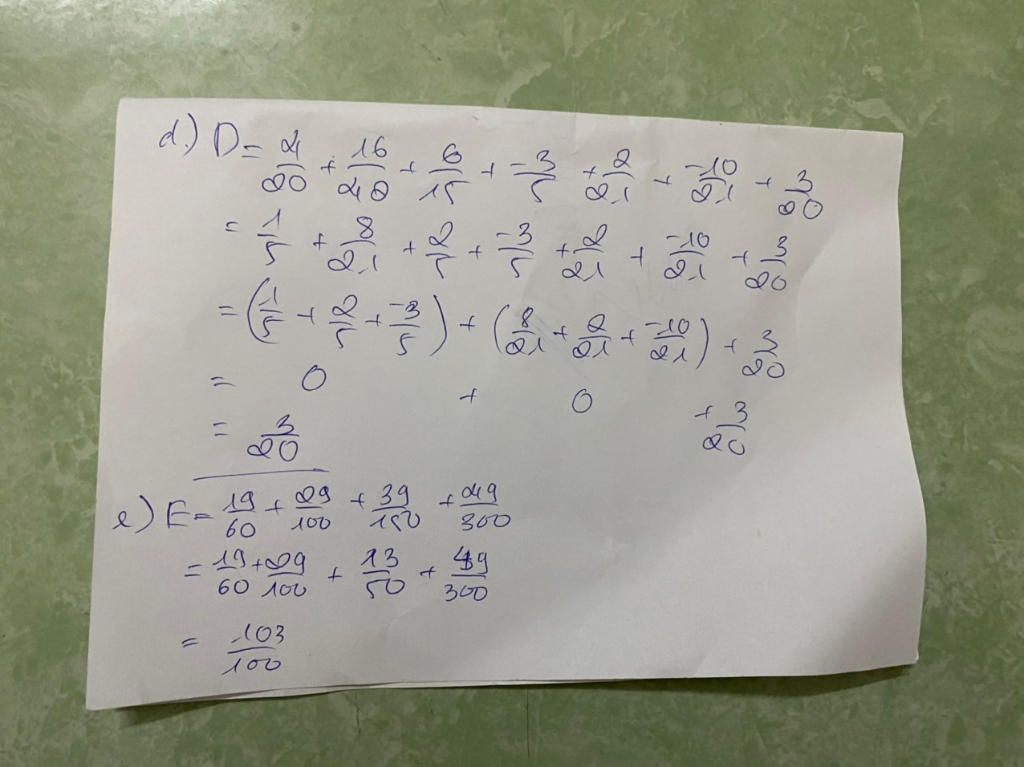 d.) D = 4/20 + 16/42 + 6/15 + -3/5 + 2/21 + -10/21 + 3/20
= 1/5 + 8/21 + 2/5 + -3/5 + 2/21 + -10/21 + 3/20
= (1/5 + 2/5 + -3/5) + (8/21 + 2/21 + -10/21) + 3/20
= 0 + 0 + 3/20
= 3/20
e) E = 19/60 + 29/100 + 39/150 + 49/300
= 19/60 + 29/100 + 13/50 + 49/300
= 103/100